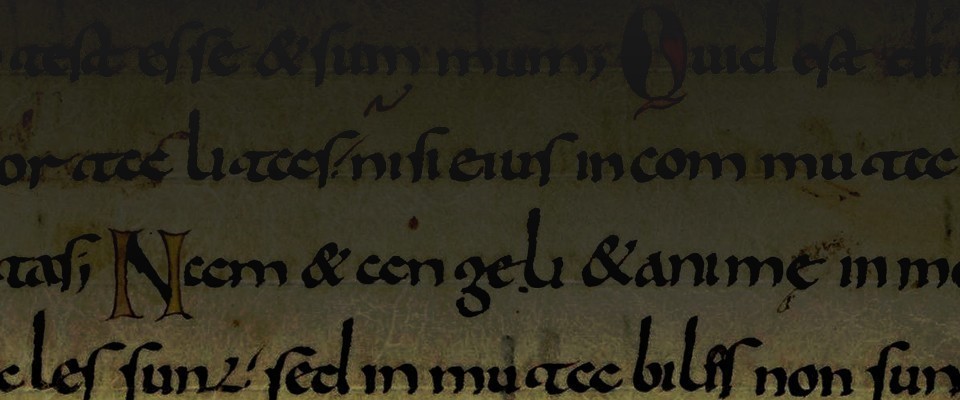 esse & summum; Quid est di
ortalitas nisi eius incommuta
tas; Nam & angeli & animę inmo
les sunt sed inmutabiles non sun